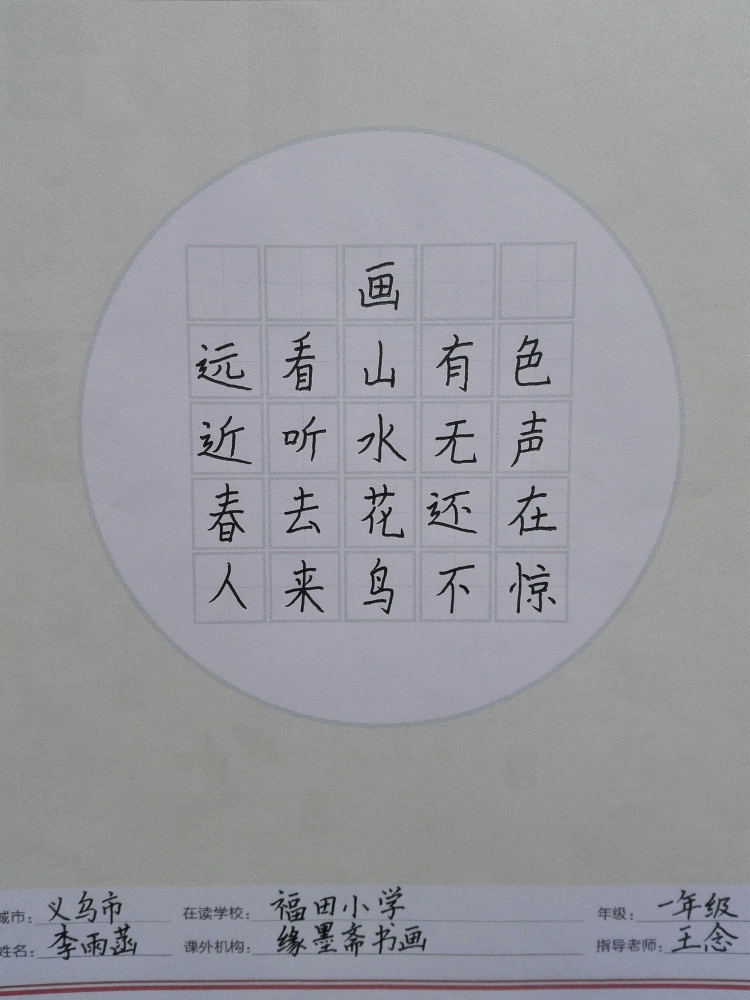 画
远看山有色
近听水无声
春去花还在
人来鸟不惊
城市: 义乌市 在读学校: 福田小学 年级: 一年级
姓名: 李雨菡 课外机构: 缘墨斋书画 指导老师: 王念